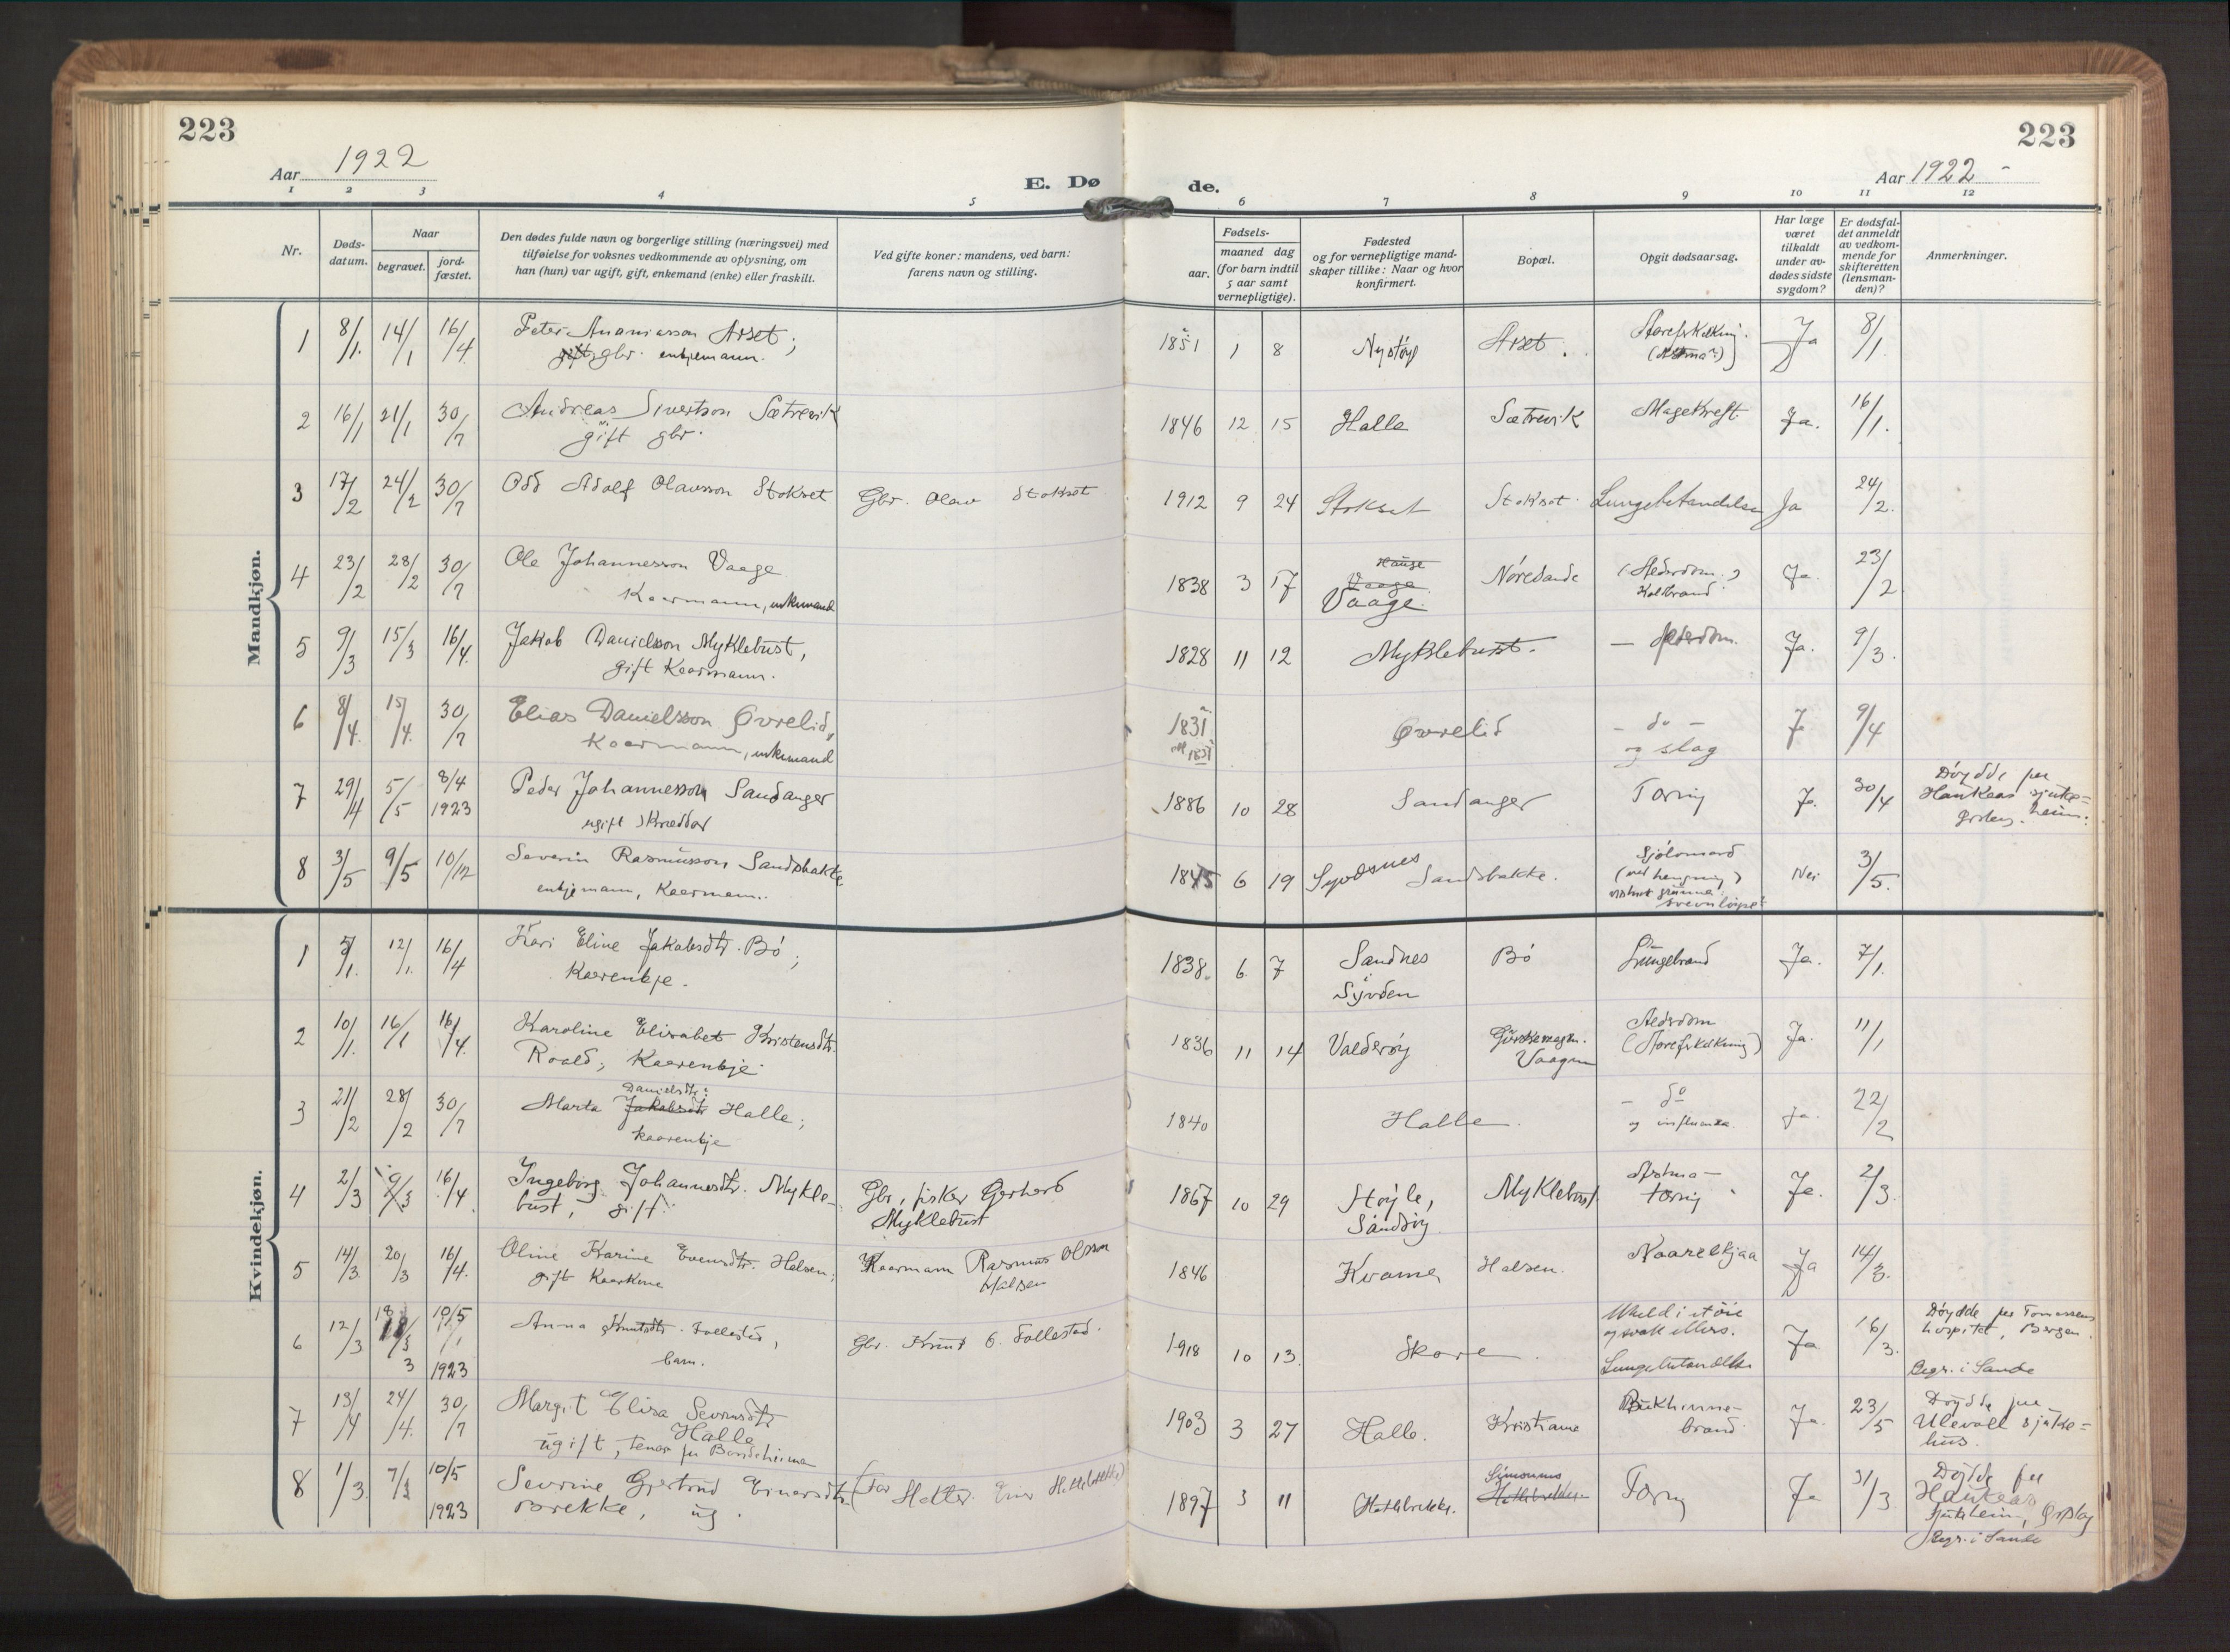 223
223
Aar 1922
E. Dø de.
Aar 1922 -
1 2 3 4 5 6 7 8 9 10 11 12
Nr.
Døds-
datum.
Naar
begravet.
jord-
fæstet.
Den dødes fulde navn og borgerlige stilling (næringsvei) med
tilføielse for voksnes vedkommende av oplysning, om
han (hun) var ugift, gift, enkemand (enke) eller fraskilt.
Ved gifte koner: mandens, ved barn:
farens navn og stilling.
Fødsels-
aar.
maaned dag
(for barn indtil
5 aar samt
vernepligtige).
Fødested
og for vernepligtige mand-
skaper tillike: Naar og hvor
konfirmert.
Bopæl.
Opgit dødsaarsag.
Har læge
været
tilkaldt
under av-
dødes sidste
sygdom?
Er dødsfal-
det anmeldt
av vedkom-
mende for
skifteretten
(lensman-
den)?
Anmerkninger.
Mandkjøn.
1 8/1. 14/1 16/4 Peter Ananiasson Arset; 1851 1 8 Nystøyl Arset. Ja 8/1
gift gbr. enkjemann.
2 16/1 21/1 30/7 Andreas Sivertson Sætrevik 1846 12 15 Halle Sætrevik Magekreft Ja. 16/1.
gift gbr.
3 17/2 24/2 30/7 Odd Adolf Olavsson Stokset Gbr. Olav Stokset 1912 9 24 Stokset Stokset Lungebetendelse Ja 24/2.
4 23/2 28/2 30/7 Ole Johannesson Vaage 1838 3 17 Hauge Vaage Vaage. Nøresande (Alderdom.) Ja. 23/2
Kaarmann, enkemand Kolbrand
5 9/3 15/3 16/4. Jakob Danielsson Myklebust, 1828 11 12 Myklebust. - Alderdom. Ja. 9/3.
gift Kaarmann.
6 8/4. 15/4. 30/7 Elias Danielsson Øvrelid, 1831 Øvrelid - do - J 9/4
Kaarmann, enkemand 1831 og slag
7 29/4 5/5 8/4 1923 Peder Johannesson Sandanger 1886 10 28 Sandanger Tæring J. 30/4 Døydde per
ugift skræddar Haukeas sjuke-
heim.
8 3/5 9/5 10/12 Severin Rasmusson Sandsbakke 1845 6 19 Syvdsnes Sandsbakke. Sjølvmord Nei 3/5.
enkjemann, Kaarmann. (ved hengning)
Kvindekjøn.
1 5/1. 12/1. 16/4 Kari Eline Jakobsdtr. Bø; 1838. 6. 7 Sandnes Bø Lungebrand Ja. 7/1.
Kaarenkje. i Syvden
2 10/1. 16/1 16/4. Karoline Elisabet Kristensdtr. 1836 11 14 Valderøy Gurskemagn. Alderdom Ja. 11/1
Roald; Kaarenkje. Vaagen
3 21/2 28/2 30/7 Marta Jakobsdtr. Danielsdtr. Halle; 1840 Halle. - do Ja. 22/2
kaarenkje og influenza.
4 2/3 9/3 16/4 Ingeborg Johannesdtr. Mykle- Gbr, fisker Gerhard 1867 10 29 Støyle, Myklebust Astma - Ja. 2/3.
bust, gift. Myklebust Sandsøy tæring
5 14/3 20/3 16/4. Oline Karine Evensdtr. Halsen; Kaarmann Rasmus Olsson 1846 Kvame, Halsen. Ja 14/3.
gift Kaarkone Halsen
6 12/3 18/3 10/5 1923 Anna Knutsdtr. Follestad, Gbr. Knut E. Follestad. 1918 10 13. Skare. Uheld i støie Ja 16/3. Døydde per Tomassens
barn. og svak ellers. hospital, Bergen.
Lungebetændelse Begr. i Sande
7 13/4 24/4. 30/7 Margit Elisa Seversdtr. 1903 3 27 Halle. Kristiania Bukhinne- Ja. 23/5 Døydde per
Halle brand Ulevoll sjuke-
ugift, tenar hus.
8 1/3. 7/3 10/5 1923 Sevrine Gjertrud Einarsdtr. (Far 1897 3 11 Hatlebrekke. Simonnes Tæring Ja 31/3 Døydde per
brekke, ug. Haukeas
sjukeheim,
Begr. i Sande